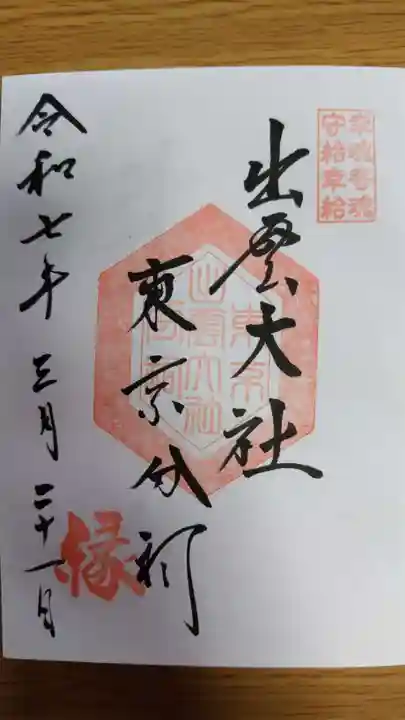 幸魂奇魂
守給幸給
出雲大社
東京分祠
令和七年 三月 二十一日
縁
東京
出雲大社
分祠